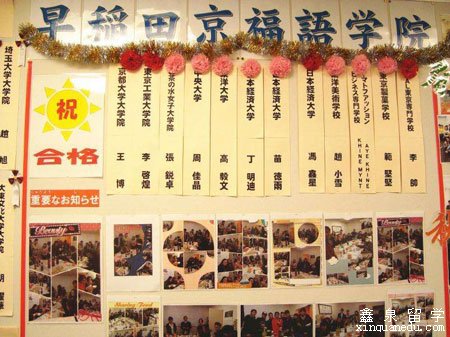 早稲田京福語学院
埼玉大学大学院 趙 旭
祝
合格
重要なお知らせ
京都大学大学院 王 博
東京工業大学 李 啓煌
茶の水女子大学院 張 鋭卓
央大学 周 佳晶
洋大学 高 毅文
本経済大学 丁 明迪
本経済大学 苗 徳雨
日本経済大学 馮 鑫星
洋美術学校 趙 小雪
マトファッション
ジネス専門学校 AYE KHINE
KHINE MYNT
東京製菓学校 範 堅堅
東京専門学校 李 帥
大東文化大学大学院 胡
鑫泉留学
xinquanedu.com